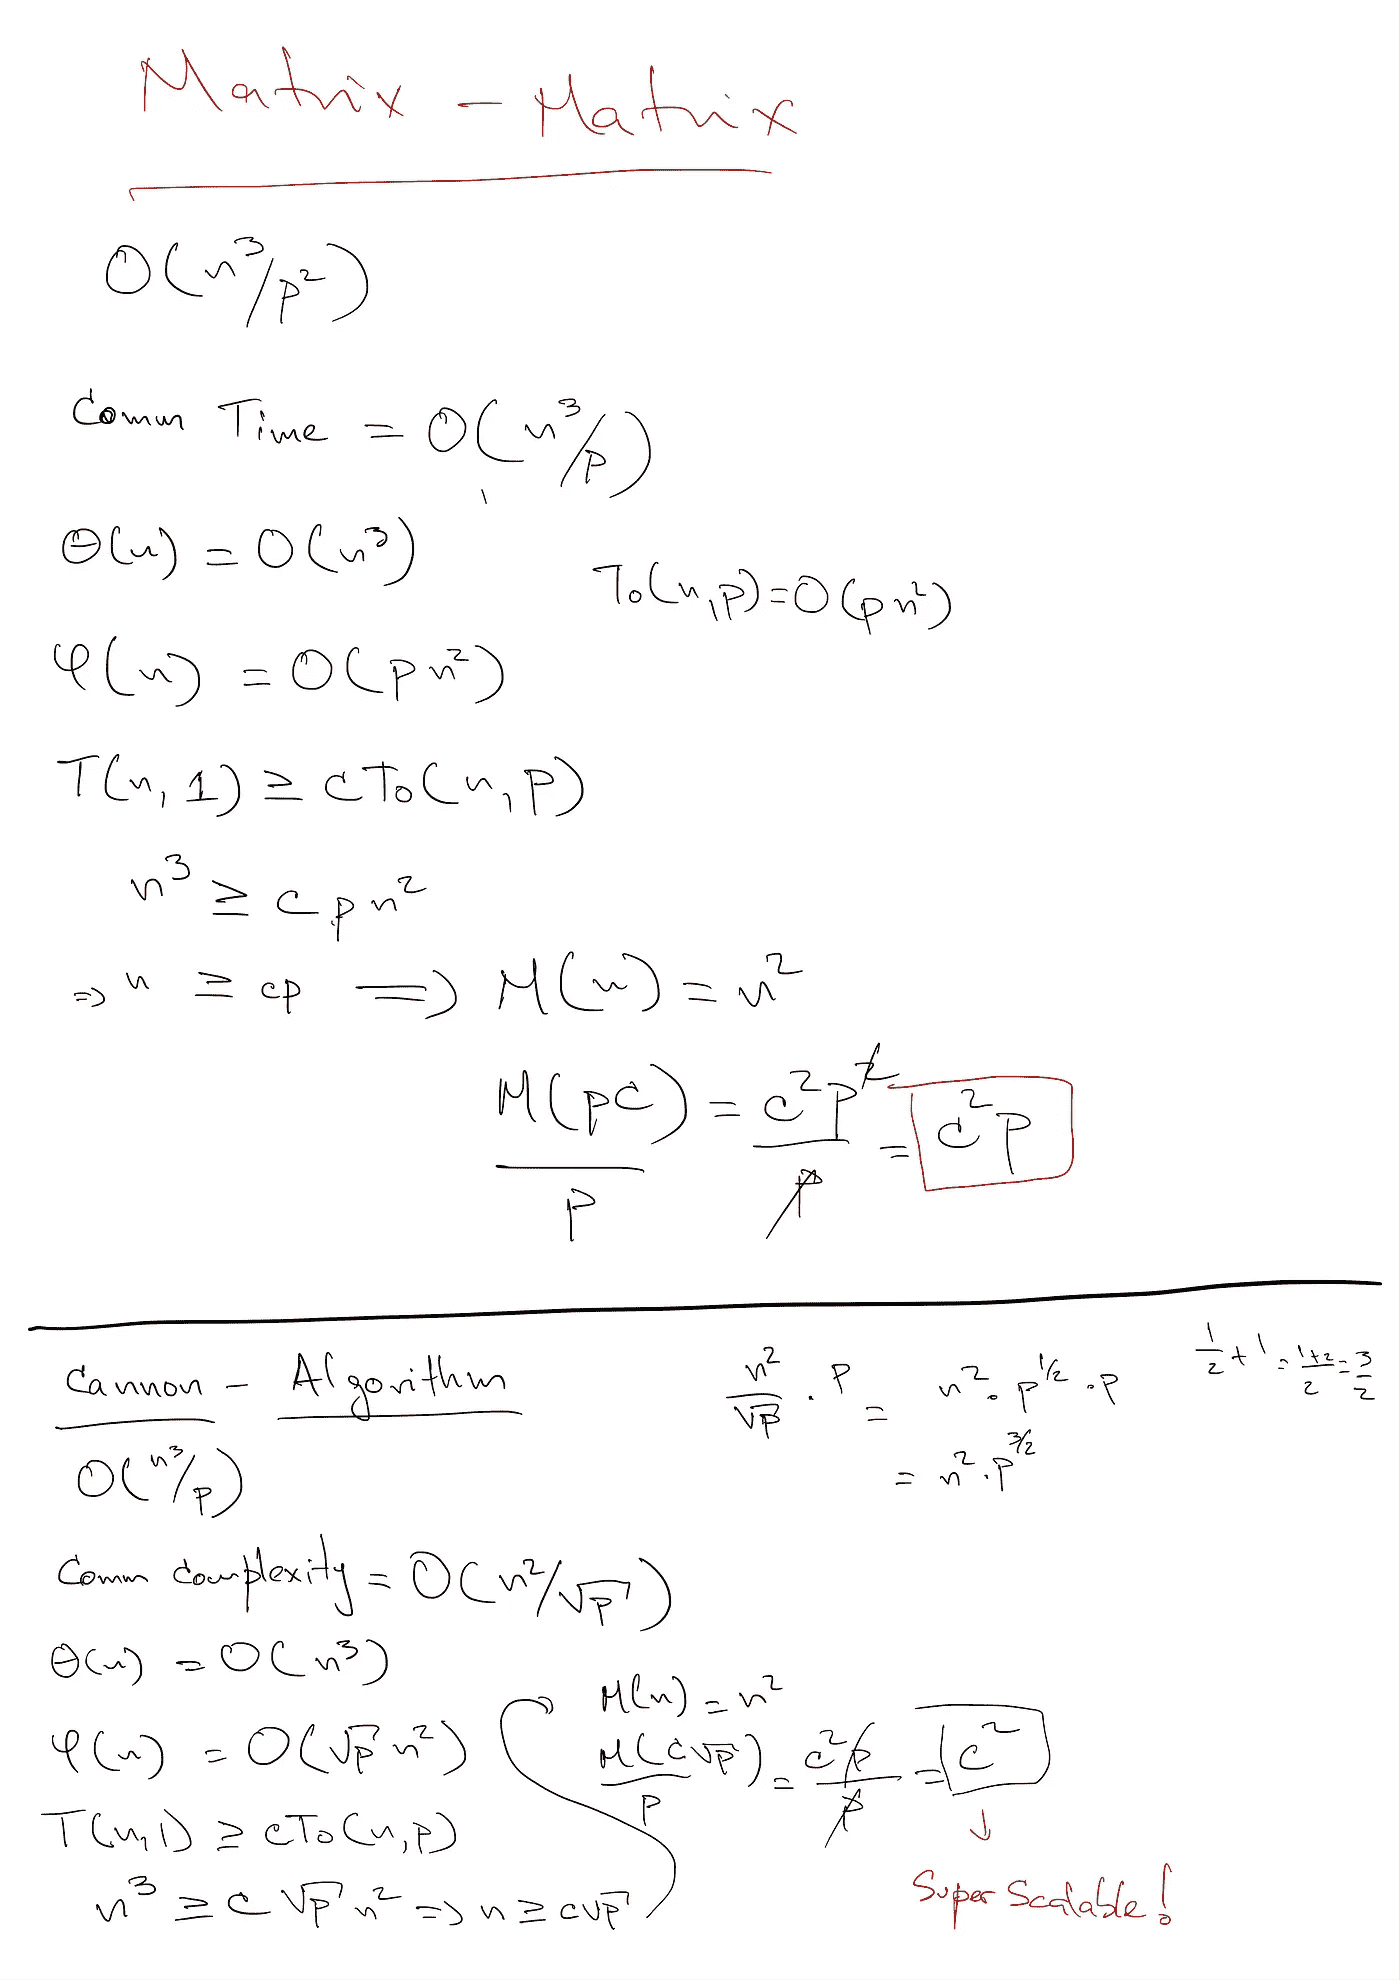 Matrix - Matrix
O(n³/p²)
Comm Time = O(n³/p)
Θ(n) = O(n³)
To(n,p)=O(pn²)
φ(n) = O(pn²)
T(n,1) ≥ cTo(n,p)
n³ ≥ cpn²
⇒ n ≥ cp ⇒ M(n) = n²
M(pc)/p = c²p²/p = c²p
Cannon - Algorithm
n²/√p · p = n² · p^1/2 · p
1/2 + 1 = 1+2/2 = 3/2
= n² · p^3/2
O(n³/p)
Comm complexity = O(n²/√p)
Θ(n) = O(n³)
φ(n) = O(√p n²)
T(n,1) ≥ cTo(n,p)
n³ ≥ c√p n² ⇒ n ≥ c√p
M(n) = n²
M(c√p)/p = c²p/p = c²
↓
Super Scalable!